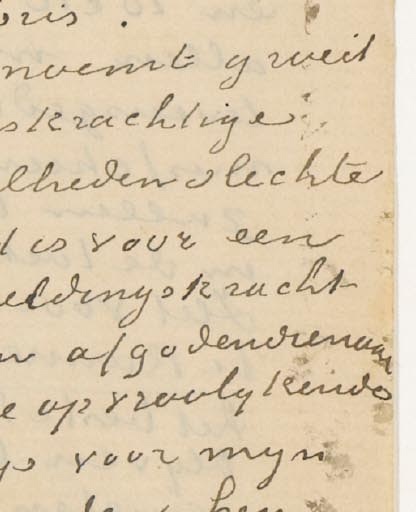 oris.
noemt g weil
skrachtige
lheden slechte
t is voor een
eeldingskracht
n afgodendienaar
e op vroolyk einde
js voor myn